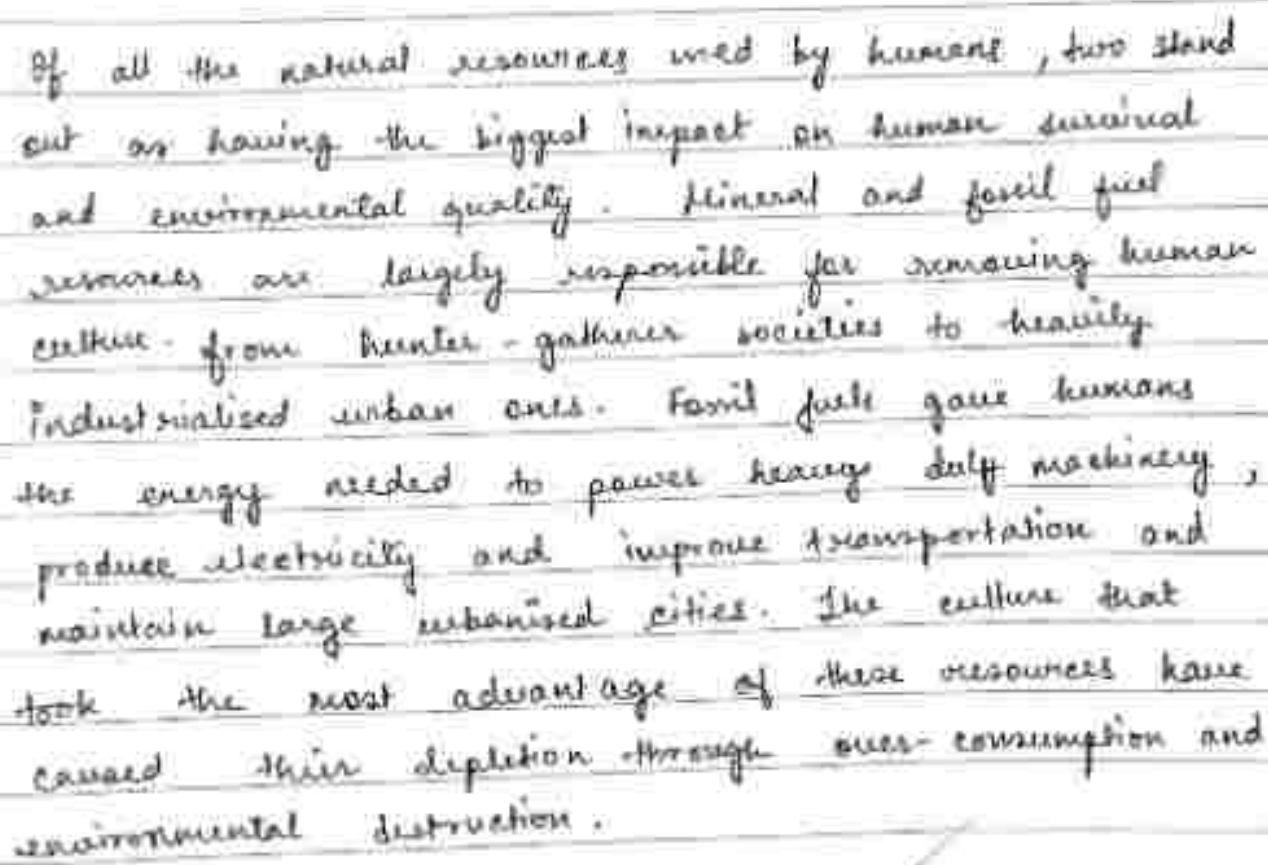 Of all the natural resources used by humans, two stand
out as having the biggest impact on human survival
and environmental quality. Mineral and fossil fuel
resources are largely responsible for removing human
culture from hunter-gatherer societies to heavily
industrialised urban ones. Fossil fuels gave humans
the energy needed to power heavy duty machinery,
produce electricity and improve transportation and
maintain large urbanised cities. The culture that
took the most advantage of these resources have
caused their depletion through over-consumption and
environmental destruction.